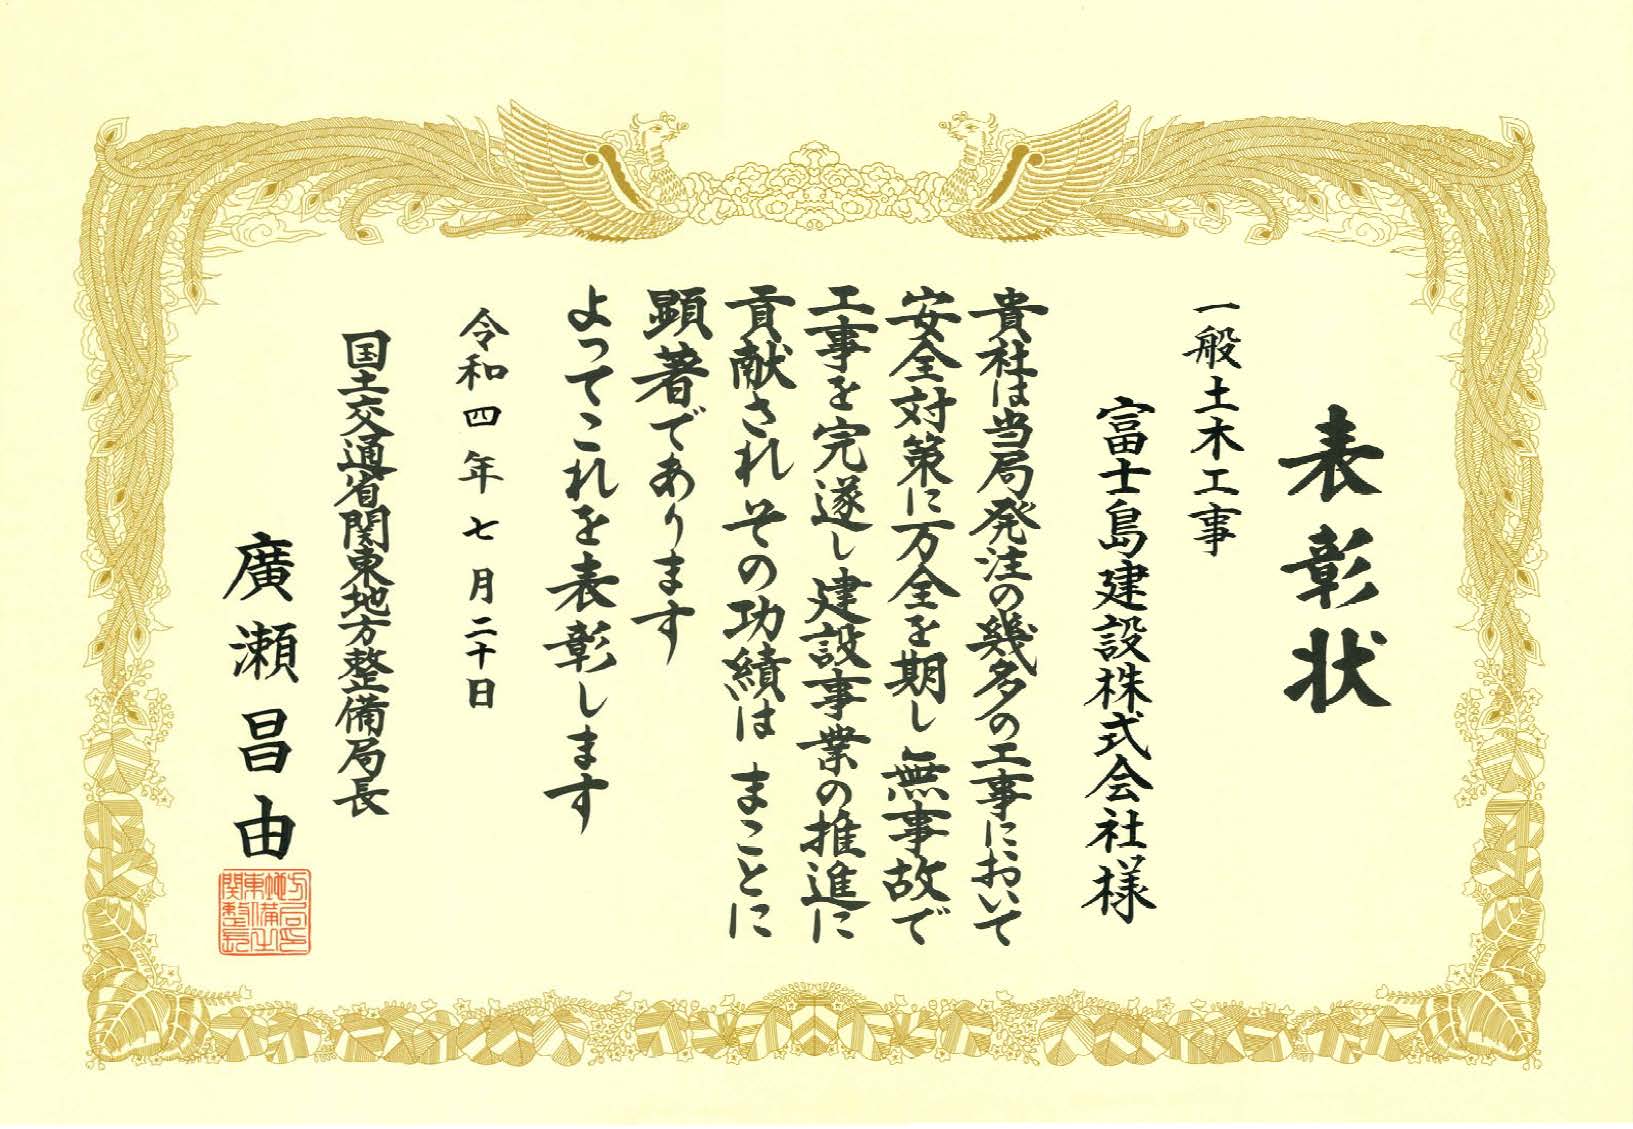 表彰状
一般土木工事
富士島建設株式会社様
貴社は当局発注の幾多の工事において
安全対策に万全を期し無事故で
工事を完遂し建設事業の推進に
貢献されその功績はまことに
顕著であります
よってこれを表彰します
令和四年七月二十日
国土交通省関東地方整備局長
廣瀬昌由